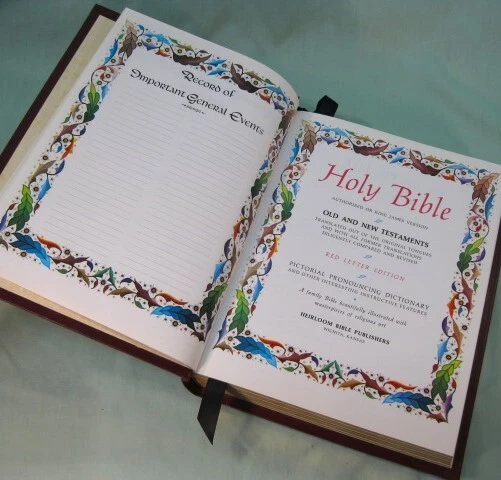 Record of
Important General Events
Holy Bible
AUTHORIZED OR KING JAMES VERSION
OLD AND NEW TESTAMENTS
TRANSLATED OUT OF THE ORIGINAL TONGUES
AND WITH ALL FORMER TRANSLATIONS
DILIGENTLY COMPARED AND REVISED
RED LETTER EDITION
PICTORIAL PRONOUNCING DICTIONARY
AND OTHER INTERESTING INSTRUCTIVE FEATURES
A family Bible beautifully illustrated with
masterpieces of religious art
HEIRLOOM BIBLE PUBLISHERS
WICHITA, KANSAS